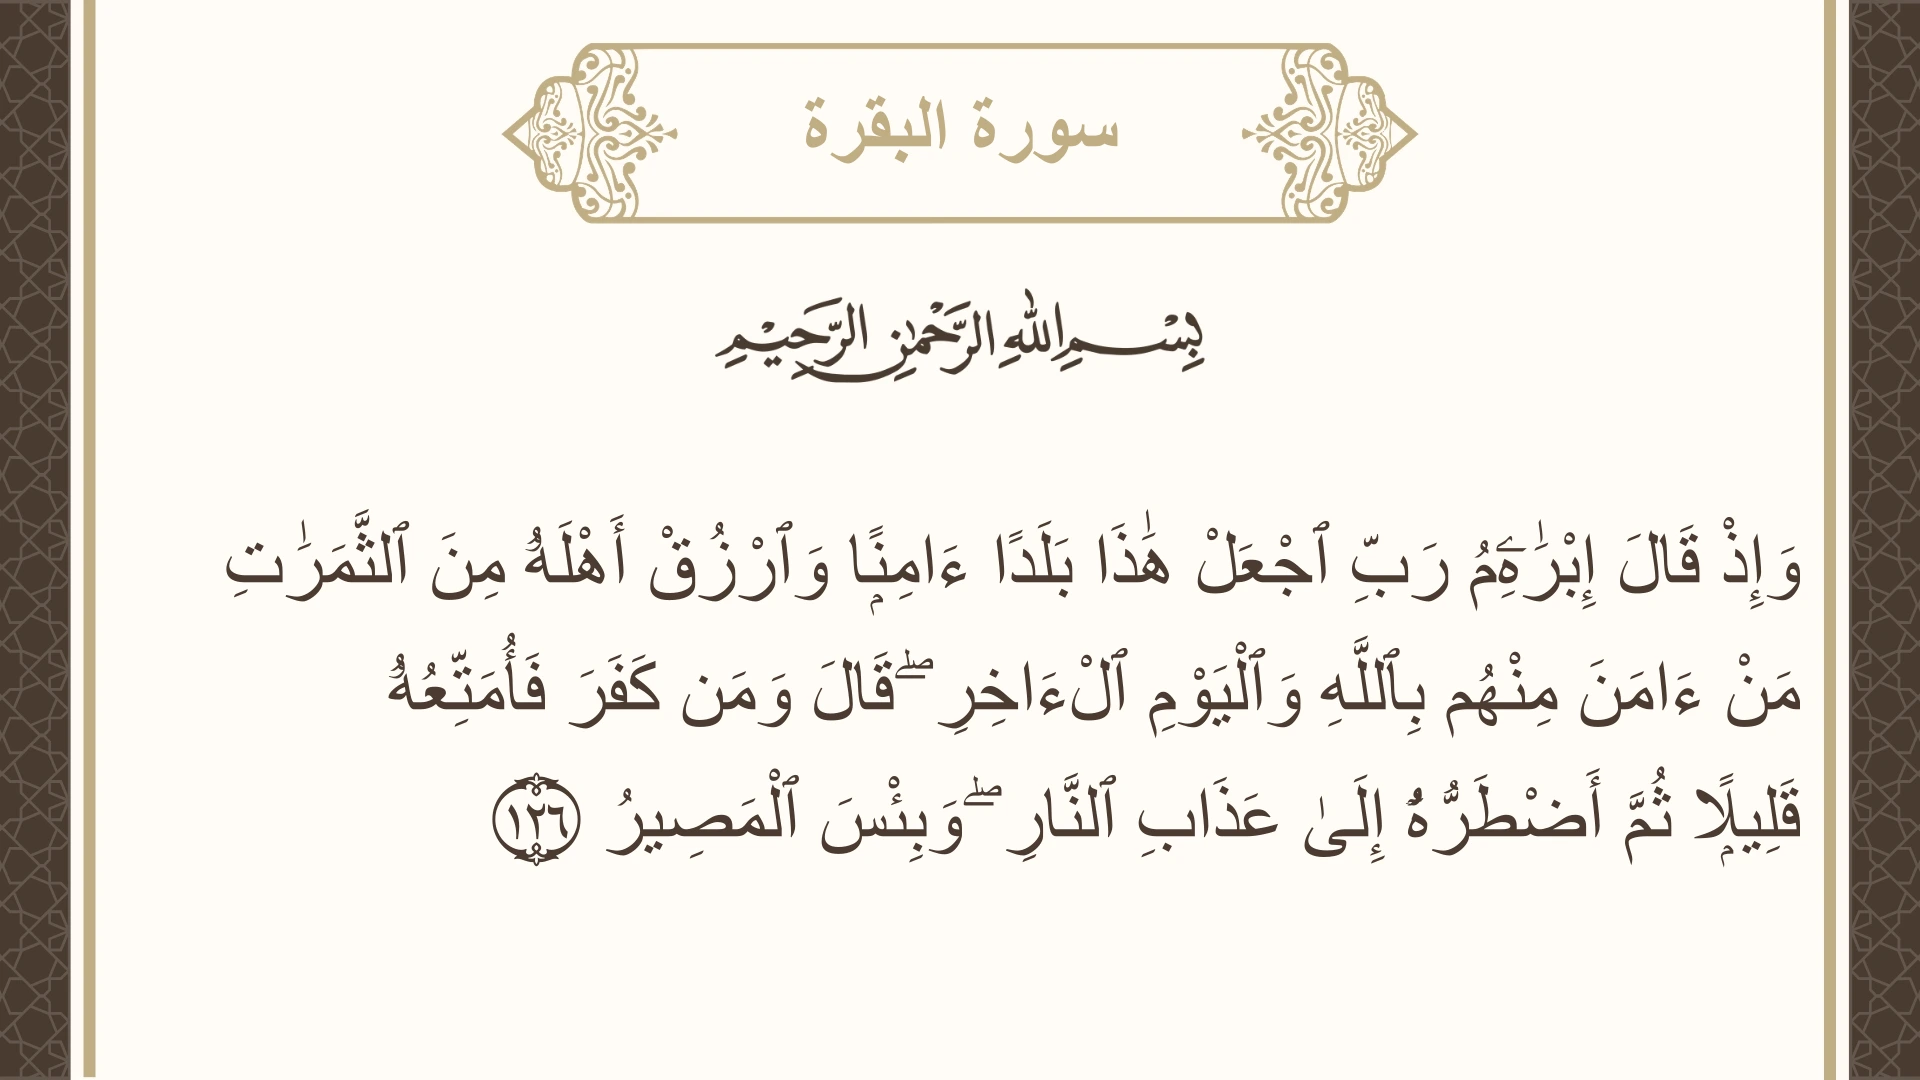 سورة البقرة
بِسْمِ اللهِ الرَّحْمٰنِ الرَّحِيْمِ
وَإِذْ قَالَ إِبْرَٰهِۦمُ رَبِّ ٱجْعَلْ هَٰذَا بَلَدًا ءَامِنًۭا وَٱرْزُقْ أَهْلَهُۥ مِنَ ٱلثَّمَرَٰتِ
مَنْ ءَامَنَ مِنْهُم بِٱللَّهِ وَٱلْيَوْمِ ٱلْءَاخِرِ ۖ قَالَ وَمَن كَفَرَ فَأُمَتِّعُهُۥ
قَلِيلًۭا ثُمَّ أَضْطَرُّهُۥٓ إِلَىٰ عَذَابِ ٱلنَّارِ ۖ وَبِئْسَ ٱلْمَصِيرُ ١٢٦